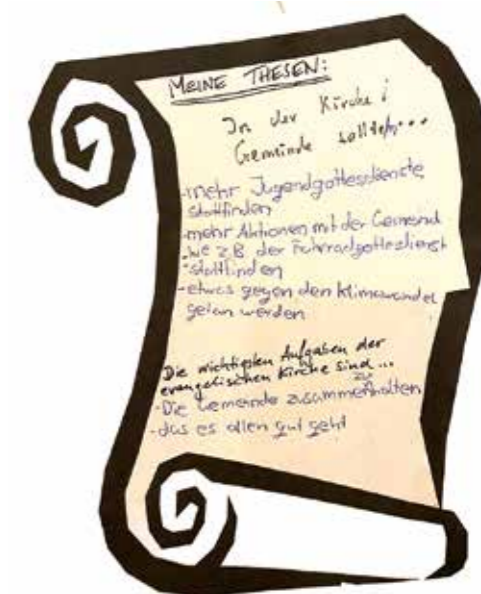 MEINE THESEN:
In der Kirche /
Gemeinde sollte/n...
-mehr Jugendgottesdienste
stattfinden
-mehr Aktionen mit der Gemeind
-we z.B der Fahrradgottesdienst
stattfinden
-etwas gegen den Klimawandel
getan werden
Die wichtigsten Aufgaben der
evangelischen Kirche sind...
zu
-Die Gemeinde zusammenhalten
-das es allen gut geht